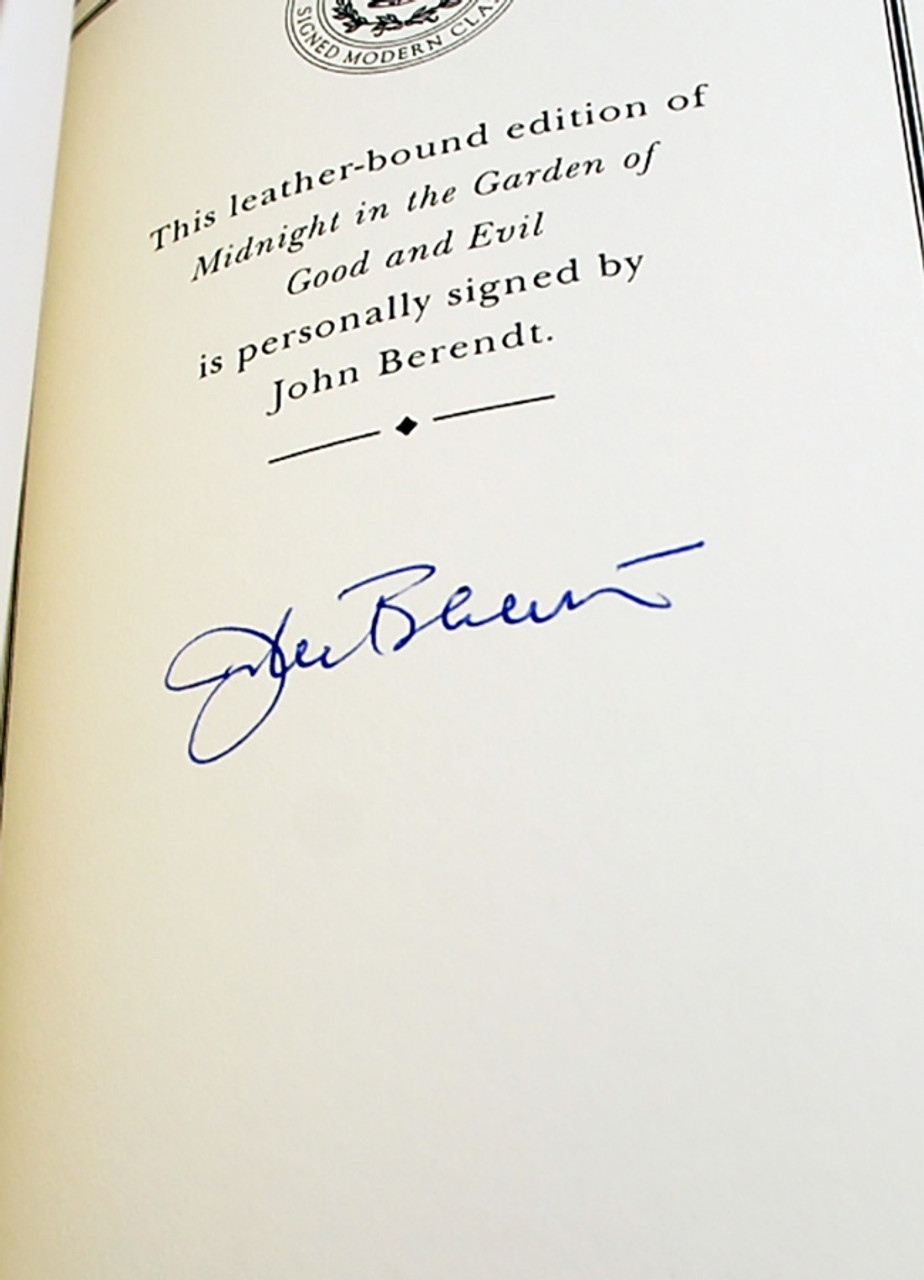 SIGNED MODERN CLA
This leather-bound edition of
Midnight in the Garden of
Good and Evil
is personally signed by
John Berendt.
John Berendt